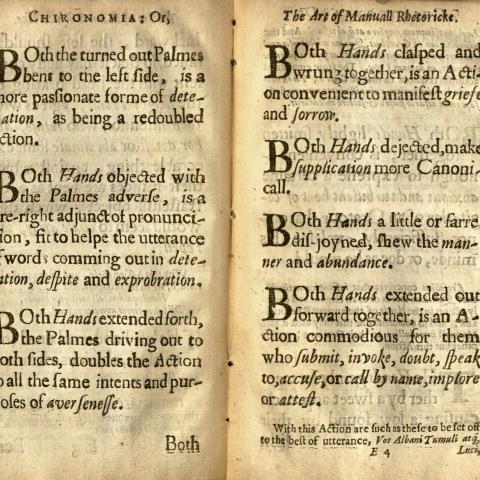 CHIRONOMIA: Or,
BOth the turned out Palmes
bent to the left ſide, is a
more paſſionate forme of dete-
ation, as being a redoubled
ction.
BOth Hands objected with
the Palmes adverſe, is a
re-right adjunct of pronunci-
ion, fit to helpe the utterance
words comming out in dete-
ation, deſpite and exprobration.
BOth Hands extended forth,
the Palmes driving out to
oth ſides, doubles the Action
o all the ſame intents and pur-
oſes of averſeneſſe.
Both
The Art of Manuall Rhetoricke.
BOth Hands claſped and
wrung together, is an Acti-
on convenient to manifeſt griefe
and ſorrow.
BOth Hands dejected, make
ſupplication more Canoni-
call.
BOth Hands a little or farre
diſ-joyned, ſhew the man-
ner and abundance.
BOth Hands extended out
forward together, is an A-
ction commodious for them
who ſubmit, invoke, doubt, ſpeak
to, accuſe, or call by name, implore
or atteſt.
With this Action are ſuch as theſe to be ſet off
to the beſt of utterance, Vos Albani Tumuli atq,
E 4
Luci,